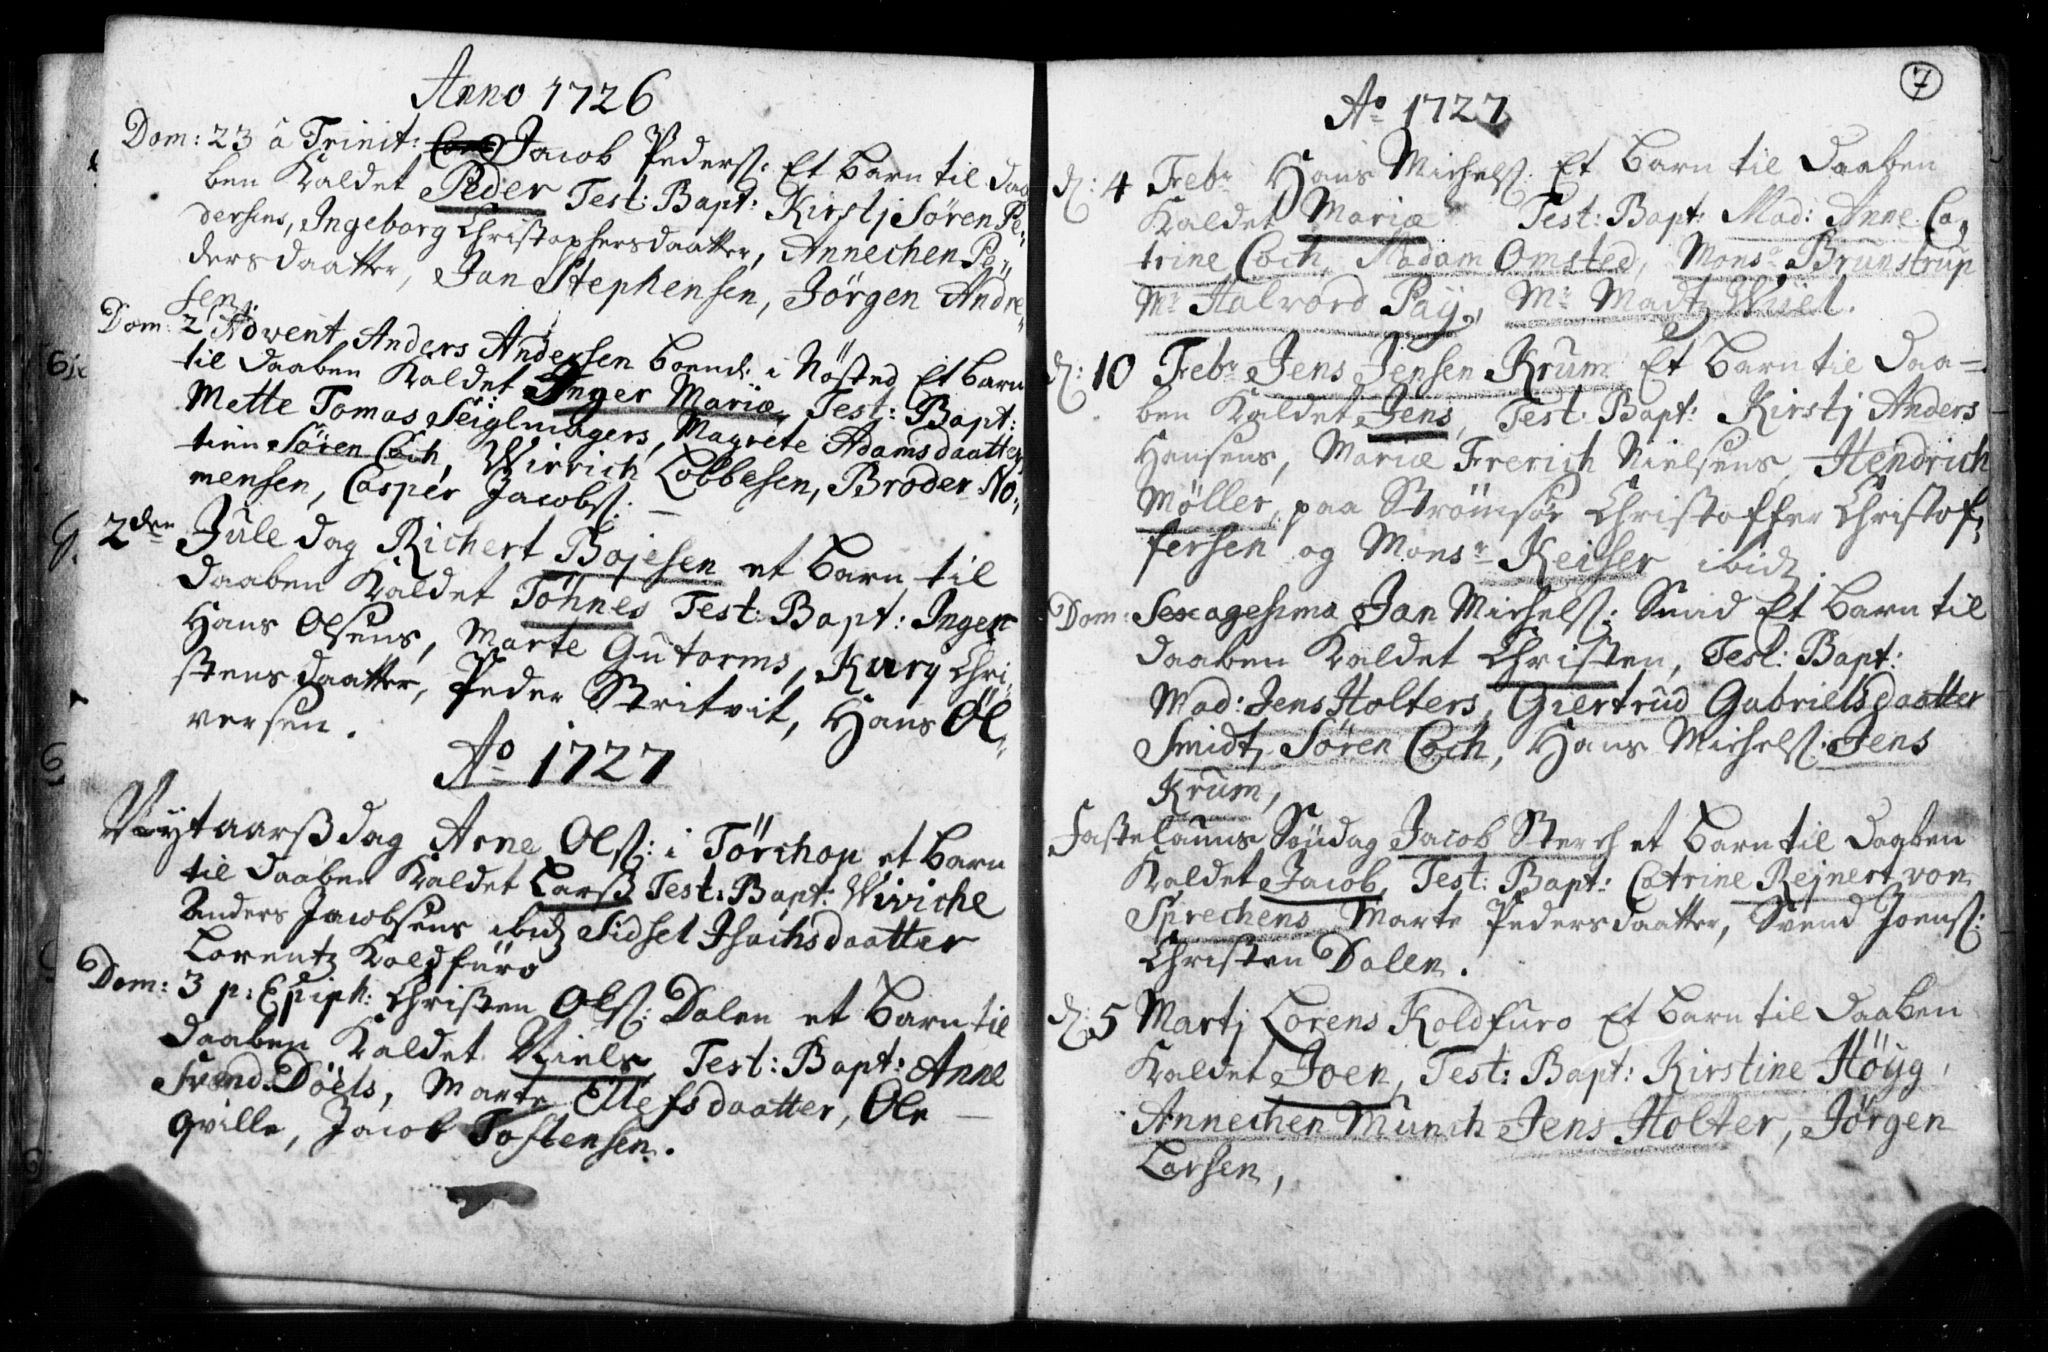 Anno 1726
Dom: 23 â Trinit: Jacob Pederß: Et barn til daa
ben kaldet Peder Test: Bapt: Kirstj Sören Pe-
dersens, Ingeborg Christophersdaatter, Annechen Pe-
dersdaatter, Jan Stephensen, Jörgen Andre-
sen.
Dom: 2 Advent Anders Andersen boend: i Nösted Et barn
til daaben kaldet Inger Mariæ Test: Bapt:
Mette Tomas Seiglmagers, Magrete Adamsdaatter
Sören Coch, Wirrich Lobbesen, Broder No-
mensen, Casper Jacobß:
2den Jule dag Richert Bojesen et barn til
daaben kaldet Töhnes Test: Bapt: Inger
Hans Olsens, Marte Gutorms, Kary Chri-
stensdaatter, Peder Stritvit, Hans Ol-
versen.
Ao 1727
Nytaarsdag Arne Olß: i Törchop et barn
til daaben kaldet Larß Test: Bapt: Wiviche
Anders Jacobsens ibid Sidsel Isachsdaatter
Lorentz Koldfüro
Dom: 3 p: Epiph: Christen Olß: Dalen et barn til
daaben kaldet Niels Test: Bapt: Anne
Svend Döels, Marte Ellefsdaatter, Ole
Qville, Jacob Toftensen.
7
Ao 1727
d: 4 Febr Hans Michelß: Et barn til daaben
kaldet Mariæ Test: Bapt: Mad: Anne Ca-
trine Coch, Madam Omsted, Monsr Brunstrup
Mr Halvord Paÿ, Mr Madtz Wiel.
d: 10 Febr Jens Jensen Krum Et barn til daa-
ben kaldet Jens, Test: Bapt: Kirstj Anders
Hansens, Mariæ Frerich Nielsens, Hendrich
Möller, paa Strömsöe Christoffer Christof-
fersen og Monsr Keiser ibid.
Dom: Sexagesima Jan Michelß: Smid Et barn til
daaben kaldet Christen, Test: Bapt:
Mad: Jens Holters, Giertrud Gabrielsdaatter
Smidt, Sören Coch, Hans Michelß: Jens
Krum,
Fastelauns Söndag Jacob Sterch et barn til daaben
kaldet Jacob, Test: Bapt: Catrine Rejnert von
Sprechens Marte Pedersdaatter, Svend Joenß:
Christen Dalen.
d: 5 Martj Lorens Koldfuro Et barn til daaben
kaldet Joen, Test: Bapt: Kirstine Höyg,
Annechen Munch Jens Holter, Jörgen
Larsen,